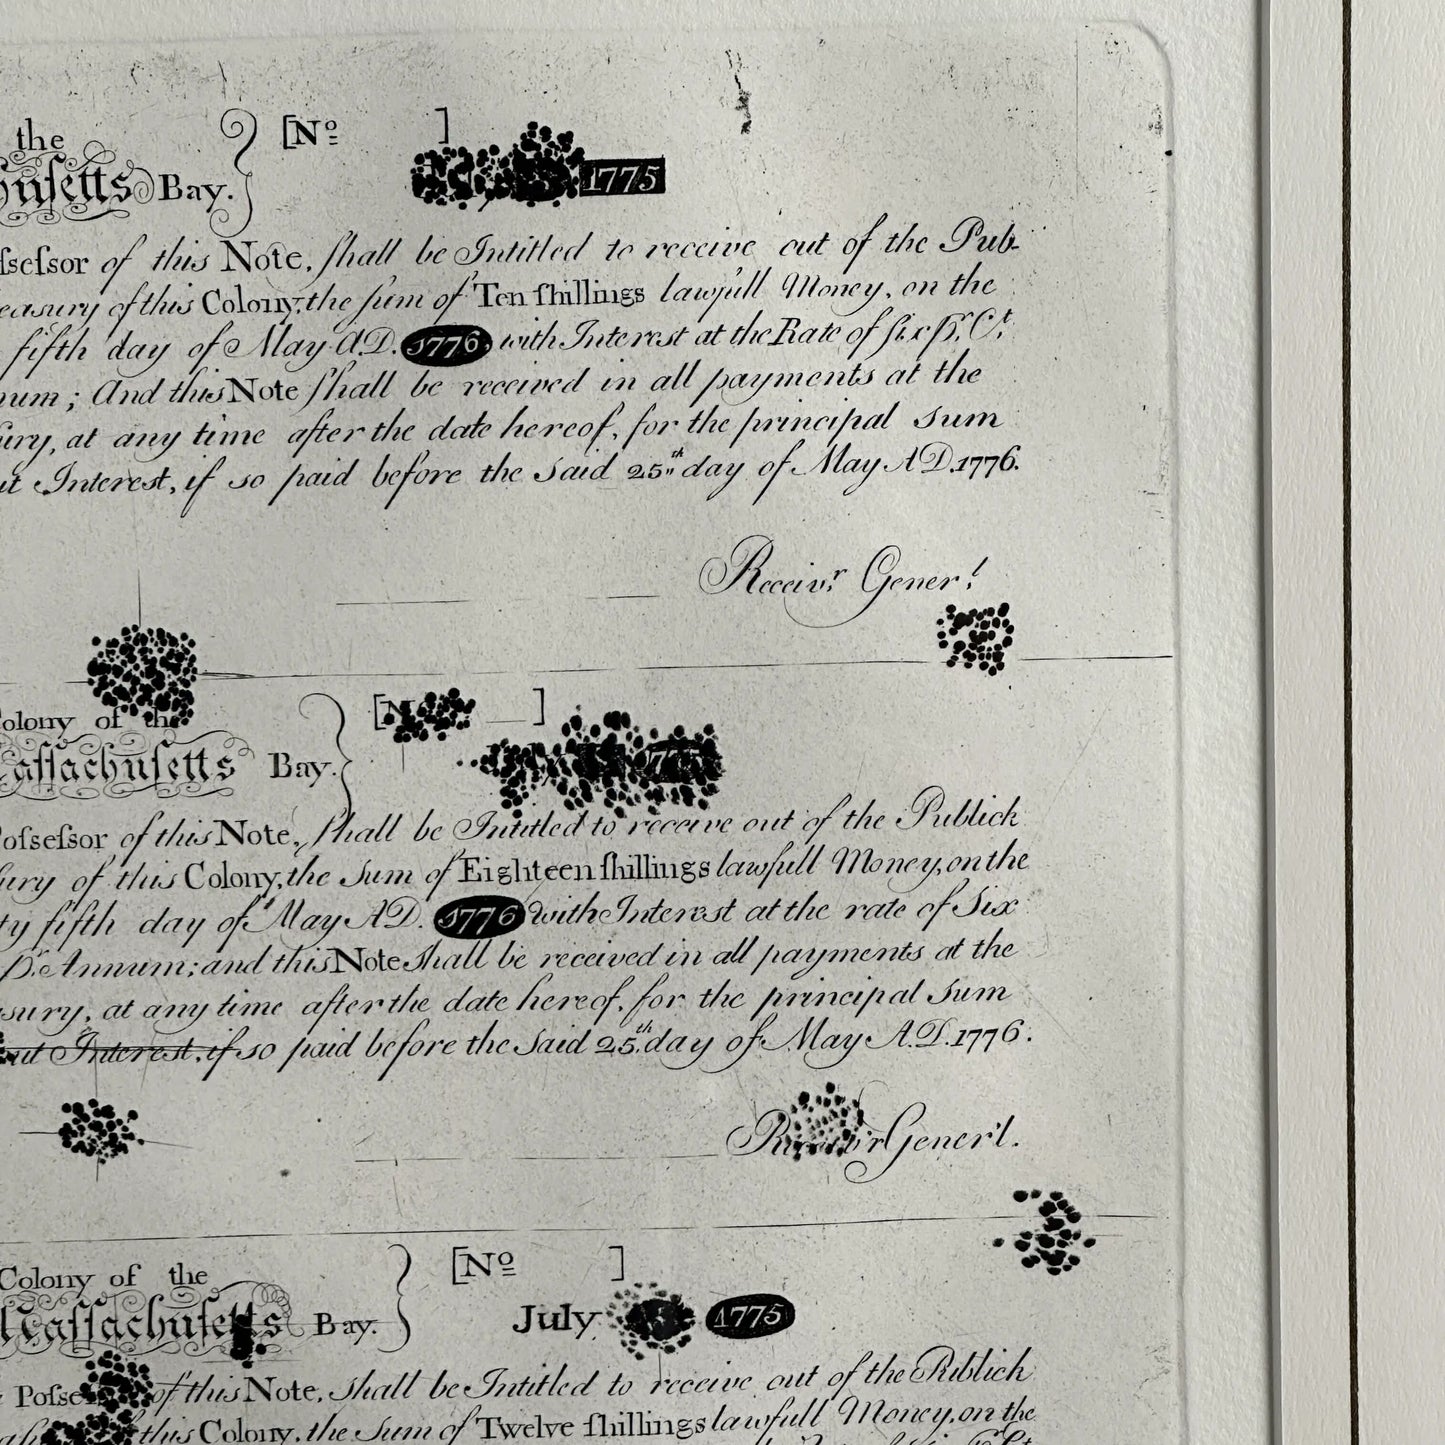 the
husetts Bay. [Nº ]
1775
ſseſsor of this Note, ſhall be Intitled to receive out of the Pub-
easury of this Colony, the ſum of Ten ſhillings lawfull Money, on the
fifth day of May A.D. 1776, with Interest at the Rate of ſix Pr. Ct.
num; And this Note ſhall be received in all payments at the
ſury, at any time after the date hereof, for the principal sum
ut Interest, if so paid before the said 25th day of May A D. 1776.
Receivr. Generl.
Colony of the [N ]
aſſachuſetts Bay.
Poſseſsor of this Note, ſhall be Intitled to receive out of the Publick
ſury of this Colony, the Sum of Eighteen ſhillings lawfull Money, on the
ty fifth day of May A D. 1776 with Interest at the rate of Six
Pr. Annum; and this Note shall be received in all payments at the
sury, at any time after the date hereof, for the principal Sum
ut Interest, if so paid before the Said 25th. day of May A.D. 1776.
Gener'l.
Colony of the [Nº ]
aſſachuſetts Bay. July 1775
Poſse of this Note, shall be Intitled to receive out of the Publick
this Colony, the Sum of Twelve ſhillings lawfull Money, on the